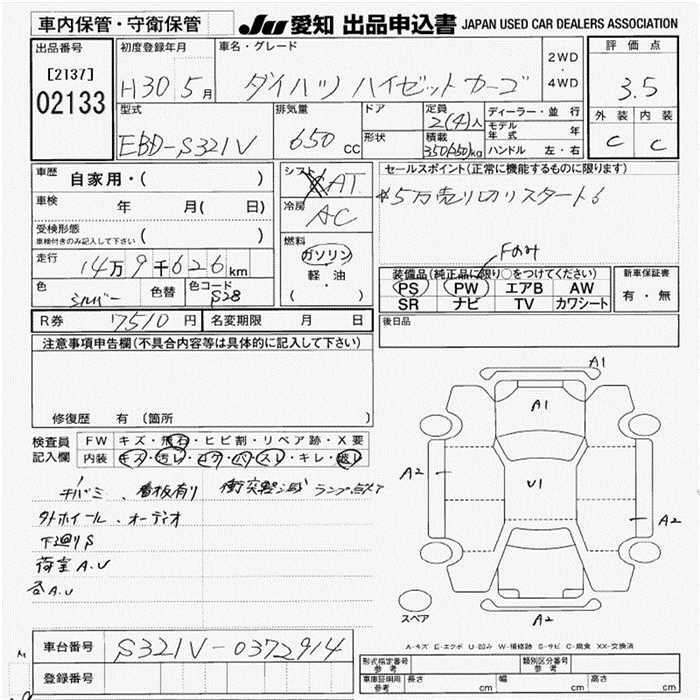 車内保管・守衛保管
JU 愛知 出品申込書 JAPAN USED CAR DEALERS ASSOCIATION
出品番号
[2137]
02133
初度登録年月
H30 5月
車名・グレード
ダイハツ ハイゼットカーゴ
2WD
・
4WD
評価点
3.5
外装 内装
C C
型式
EBD-S321V
排気量
650 cc
ドア
形状
定員
2(4)人
積載
350(250)kg
ディーラー・並行
モデル年式 年
ハンドル 左・右
車歴 自家用・( )
車検 年 月( 日)
受検形態
車検付きのみ記入して下さい ( )
走行 14万9千626km
色 シルバー 色替 色コード S28
シフト AT
冷房 AC
燃料
ガソリン
軽・油
( ・ )
セールスポイント(正常に機能するものに限ります)
5万売り切りスタート
Fのみ
装備品(純正品に限り○をつけてください)
PS PW エアB AW
SR ナビ TV カワシート
新車保証書
有・無
R券 7510円 名変期限 月 日
後日品
注意事項申告欄(不具合内容等は具体的に記入して下さい)
修復歴 有 (箇所 )
検査員記入欄
FW キズ・飛石・ヒビ割・リペア跡・X要
内装 キズ・汚レ・コゲ・バリ・スレ・キレ・破レ
看板有り 衝突軽減 ランプ点灯
外ホイール、オーディオ
下廻りS
荷室A.U
各A.U
A1
A1
A2
U1
A2
A2
スペア
A-キズ E-エクボ U-凹み W-補修跡 S-サビ C-腐食 XX-交換済
車台番号 S321V-0372914
登録番号
形式指定番号 参考
類別区分番号 参考
車庫証明用 参考 長さ cm 幅 cm 高さ cm